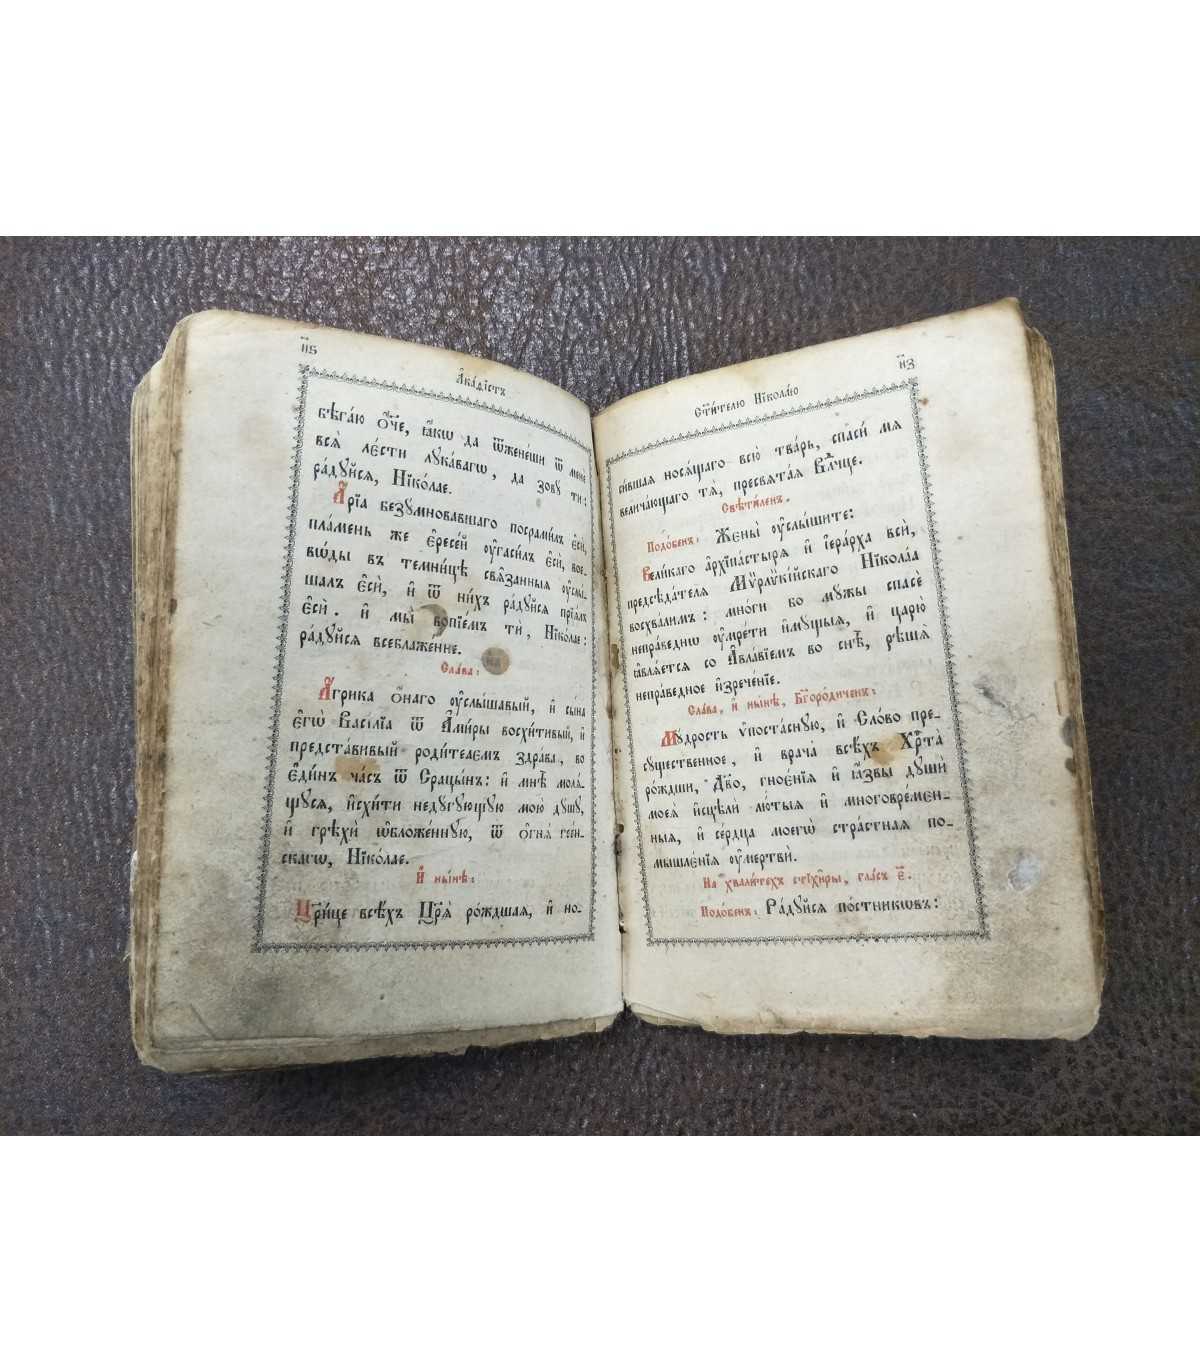 н҃ѕ
А҆ка́ѳїстъ
бѣга́ю ѻ҆́ч҃е, ꙗ҆́кѡ да ѿжене́ши ѿ менѐ
всѧ̑ ле́сти лꙋка́вагѡ, да зовꙋ́ ти:
ра́дꙋйсѧ, Нїко́лае.
А҆́рїа безꙋ́мновавшаго посрами́лъ є҆сѝ,
пла́мень же є҆ресе́й ᲂу҆гаси́лъ є҆сѝ, вое-
вѡ́ды въ темни́цѣ свѧ̑занныѧ ᲂу҆слы́-
шалъ є҆сѝ, и҆ ѿ ни́хъ ра́дꙋйсѧ прїѧ́лъ
є҆сѝ. и҆ мы̀ вопїе́мъ тѝ, Нїко́лае:
ра́дꙋйсѧ всеблаже́нне.
Сла́ва:
А҆́грика ѻ҆́наго ᲂу҆слы́шавый, и҆ сы́на
є҆гѡ̀ Васи́лїа ѿ А҆ми́ры восхи́тивый, и҆
предста́вивый роди́телємъ здра́ва, во
є҆ди́нъ ча́съ ѿ Срацы̑нъ: и҆ мнѣ̀ молѧ́-
щꙋсѧ, и҆схи́ти недꙋ́гꙋющꙋю мою̀ дꙋ́шꙋ,
и҆ грѣхѝ ѡ҆бложе́ннꙋю, ѿ ѻ҆гнѧ̀ гее́н-
скагѡ, Нїко́лае.
И҆ ны́нѣ:
Цр҃и́це всѣ́хъ Цр҃ѧ̀ ро́ждшаѧ, и҆ но-
н҃з
Ст҃и́телю Нїкола́ю
си́вшаѧ носѧ́щаго всю̀ тва́рь, спасѝ мѧ
велича́ющаго тѧ̀, пресвѧта́ѧ Влⷣчце.
Свѣти́ленъ.
Подо́бенъ: Жены̀ ᲂу҆слы́шите:
Вели́каго а҆рхїпа́стырѧ и҆ і҆ера́рха всѝ,
предсѣда́телѧ Мѷрлѷкі́йскаго Нїкола́а
восхва́лимъ: мно́ги бо мꙋ́жы спасѐ
непра́веднѡ ᲂу҆мре́ти и҆мꙋ́щыѧ, и҆ царю̀
ꙗ҆влѧ́етсѧ со А҆вла́вїемъ во снѣ̀, рѣшѧ̀
непра́ведное и҆зрече́нїе.
Сла́ва, и҆ ны́нѣ, Бг҃оро́диченъ:
Мꙋ́дрость ѵ҆поста́снꙋю, и҆ Сло́во пре-
сꙋ́щественное, и҆ врача̀ всѣ́хъ Хрⷭ҇та̀
ро́ждши, Дв҃о, гноє́нїѧ и҆ ꙗ҆́звы дꙋшѝ
моеѧ̀ и҆сцѣлѝ лю̑тыѧ и҆ многовре́мен-
ныѧ, и҆ се́рдца моегѡ̀ стра́стнаѧ по-
мышлє́нїѧ ᲂу҆мертвѝ.
На хвали́техъ стїхи̑ры, гла́съ є҃.
Подо́бенъ: Ра́дꙋйсѧ по́стникѡвъ: